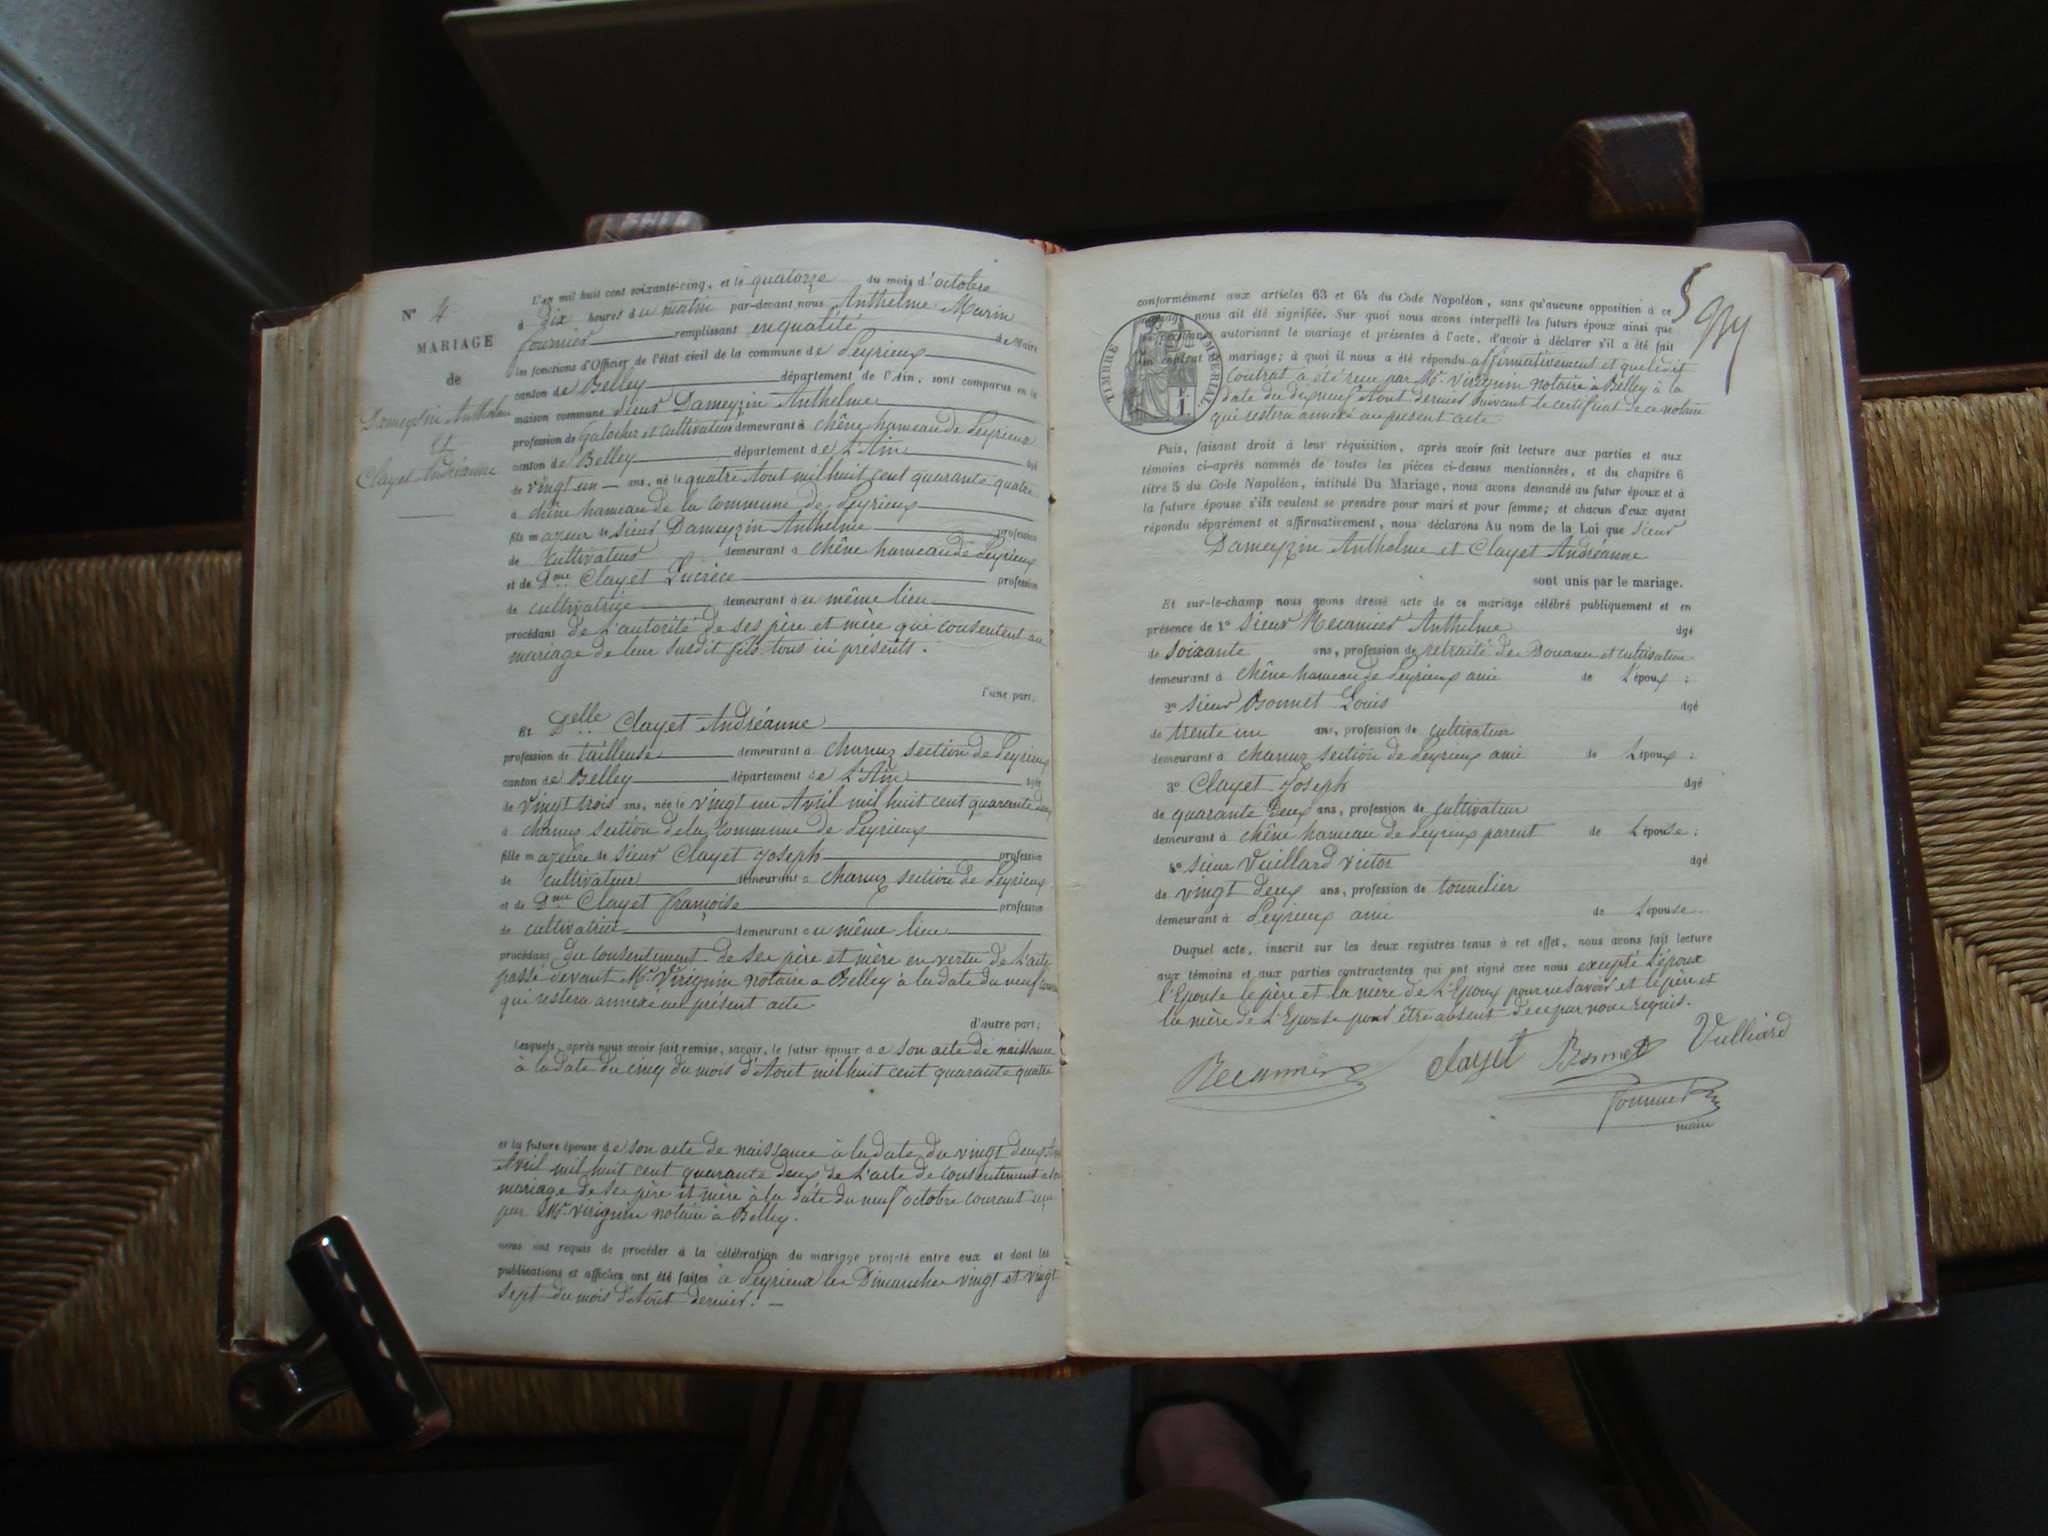 N° 4
MARIAGE
de
Dameyzin Anthelme
et
Clayet Andréanne
L'an mil huit cent soixante-cinq, et le quatorze du mois d'octobre
à dix heures du matin par-devant nous Anthelme Marin
fournier remplissant en qualité de Maire
les fonctions d'Officier de l'état civil de la commune de Peyrieux
canton de Belley département de l'Ain, sont comparus en la
maison commune sieur Dameyzin Anthelme
profession de Galocher et cultivateur demeurant à chêne hameau de Peyrieux
canton de Belley département de L'Ain âgé
de vingt un ans, né le quatre Aout mil huit cent quarante quatre
à chêne hameau de la commune de Peyrieux
fils majeur de sieur Dameyzin Anthelme profession
de Cultivateur demeurant à chêne hameau de Peyrieux
et de Dme Clayet Lucrèce profession
de cultivatrice demeurant au même lieu
procédant de L'autorité de ses père et mère que consentent au
mariage de leur susdit fils tous ici présents.
l'une part;
Et Delle Clayet Andréanne
profession de tailleuse demeurant à chanuz section de Peyrieux
canton de Belley département de L'Ain âgée
de vingt trois ans, née le vingt un Avril mil huit cent quarante deux
à chanuz section de la Commune de Peyrieux
fille majeure de sieur Clayet Joseph profession
de cultivateur demeurant à chanuz section de Peyrieux
et de Dme Clayet françoise profession
de cultivatrice demeurant au même lieu
procédant du consentement de ses père et mère en vertu de L'acte
passé devant Me Virignin notaire a Belley à la date du neuf courant
qui restera annexe au présent acte
d'autre part;
Lesquels, après nous avoir fait remise, savoir, le futur époux de son acte de naissance
à la date du cinq du mois d'Aout mil huit cent quarante quatre
et la future épouse de son acte de naissance à la date du vingt deux
Avril mil huit cent quarante deux de L'acte de consentement a son
mariage de ses père et mère à la date du neuf octobre courant reçu
par Me Virignin notaire à Belley.
nous ont requis de procéder à la célébration du mariage projeté entre eux et dont les
publications et affiches ont été faites à Peyrieux les Dimanches vingt et vingt
sept du mois d'Aout dernier.
5
conformément aux articles 63 et 64 du Code Napoléon, sans qu'aucune opposition à ce
mariage nous ait été signifiée. Sur quoi nous avons interpellé les futurs époux ainsi que
les personnes autorisant le mariage et présentes à l'acte, d'avoir à déclarer s'il a été fait
un contrat de mariage; à quoi il nous a été répondu affirmativement et que ledit
Contrat a été reçu par Me Virignin notaire a Belley à la
date du dix neuf Aout dernier suivant le certificat de ce notaire
qui restera annexé au present acte
TIMBRE IMPERIAL
1 F.
Puis, faisant droit à leur réquisition, après avoir fait lecture aux parties et aux
témoins ci-après nommés de toutes les pièces ci-dessus mentionnées, et du chapitre 6
titre 5 du Code Napoléon, intitulé Du Mariage, nous avons demandé au futur époux et à
la future épouse s'ils veulent se prendre pour mari et pour femme; et chacun d'eux ayant
répondu séparément et affirmativement, nous déclarons Au nom de la Loi que sieur
Dameyzin Anthelme et Clayet Andréanne
sont unis par le mariage.
Et sur-le-champ nous avons dressé acte de ce mariage célébré publiquement et en
présence de 1° sieur Recamier Anthelme âgé
de soixante ans, profession de retraité des Douanes et cultivateur
demeurant à chêne hameau de Peyrieux ami de L'époux ;
2° sieur Bonnet Louis âgé
de trente un ans, profession de cultivateur
demeurant à chanuz section de Peyrieux ami de L'époux ;
3° Clayet Joseph âgé
de quarante deux ans, profession de cultivateur
demeurant à chêne hameau de Peyrieux parent de L'épouse ;
4° sieur Vuillard victor âgé
de vingt deux ans, profession de tonnelier
demeurant à Peyrieux ami de L'épouse.
Duquel acte, inscrit sur les deux registres tenus à cet effet, nous avons fait lecture
aux témoins et aux parties contractantes qui ont signé avec nous excepté L'époux
l'Epouse le père et la mère de L'Epoux pour ne savoir et le père et
la mère de L'Epouse pour être absent de ce par nous requis.
Recamier Clayet Bonnet Vulliard
fournier
maire